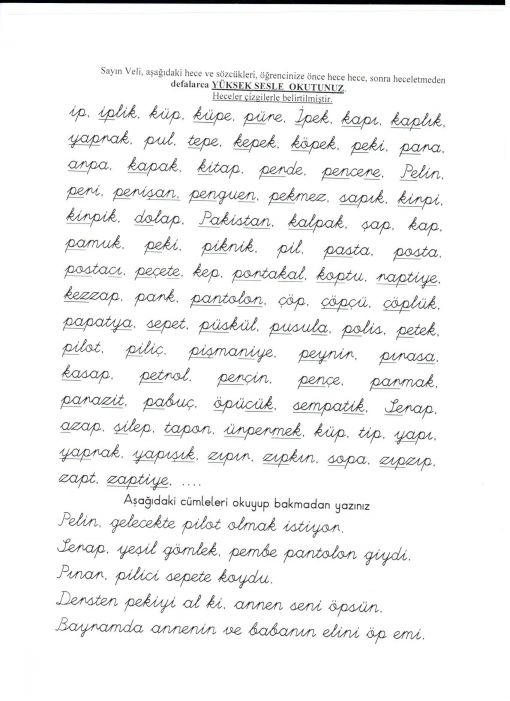 Sayın Veli, aşağıdaki hece ve sözcükleri, öğrencinize önce hece hece, sonra heceletmeden
defalarca YÜKSEK SESLE OKUTUNUZ.
Heceler çizgilerle belirtilmiştir.
ip, iplik, küp, küpe, püre, İpek, kapı, kaplık,
yaprak, pul, tepe, kepek, köpek, peki, para,
arpa, kapak, kitap, perde, pencere, Pelin,
peri, perişan, penguen, pekmez, sapık, kirpi,
kirpik, dolap, Pakistan, kalpak, şap, kap,
pamuk, peki, piknik, pil, pasta, posta,
postacı, peçete, kep, portakal, koptu, raptiye,
kezzap, park, pantolon, çöp, çöpçü, çöplük,
papatya, sepet, püskül, pusula, polis, petek,
pilot, piliç, pişmaniye, peynir, pırasa,
kasap, petrol, perçin, pençe, parmak,
parazit, pabuç, öpücük, sempatik, Serap,
azap, silep, tapon, ürpermek, küp, tip, yapı,
yaprak, yapışık, zıpır, zıpkın, sopa, zıpzıp,
zapt, zaptiye, ....
Aşağıdaki cümleleri okuyup bakmadan yazınız
Pelin, gelecekte pilot olmak istiyor.
Serap, yeşil gömlek, pembe pantolon giydi.
Pınar, pilici sepete koydu.
Dersten pekiyi al ki, annen seni öpsün.
Bayramda annenin ve babanın elini öp emi.